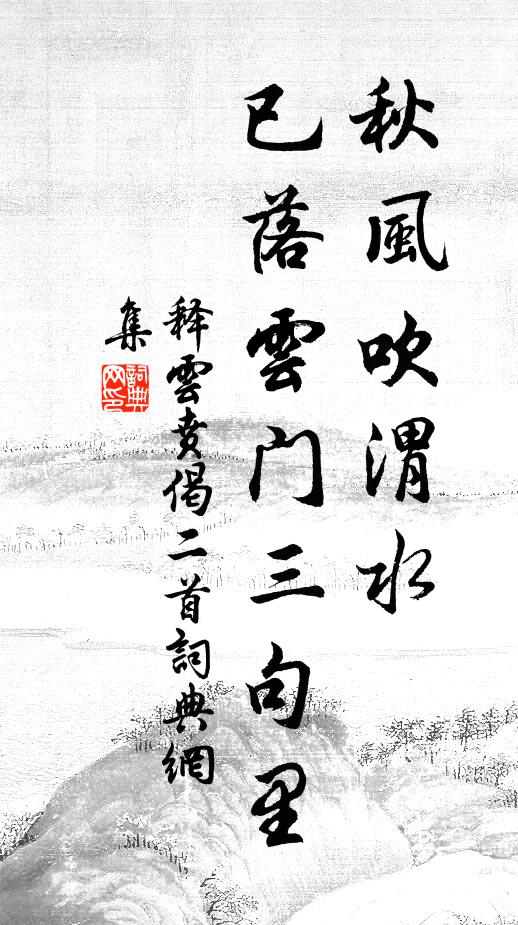 秋風吹渭水
已落雲門三句里
释雲賁偈二首詞典網
集
詞典网印